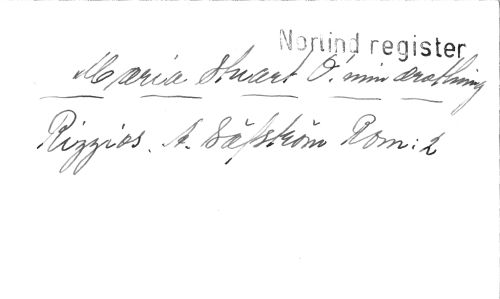 Norlind register
Maria Stuart O! min drottning
Rizzios. A. Säfström Rom: 2